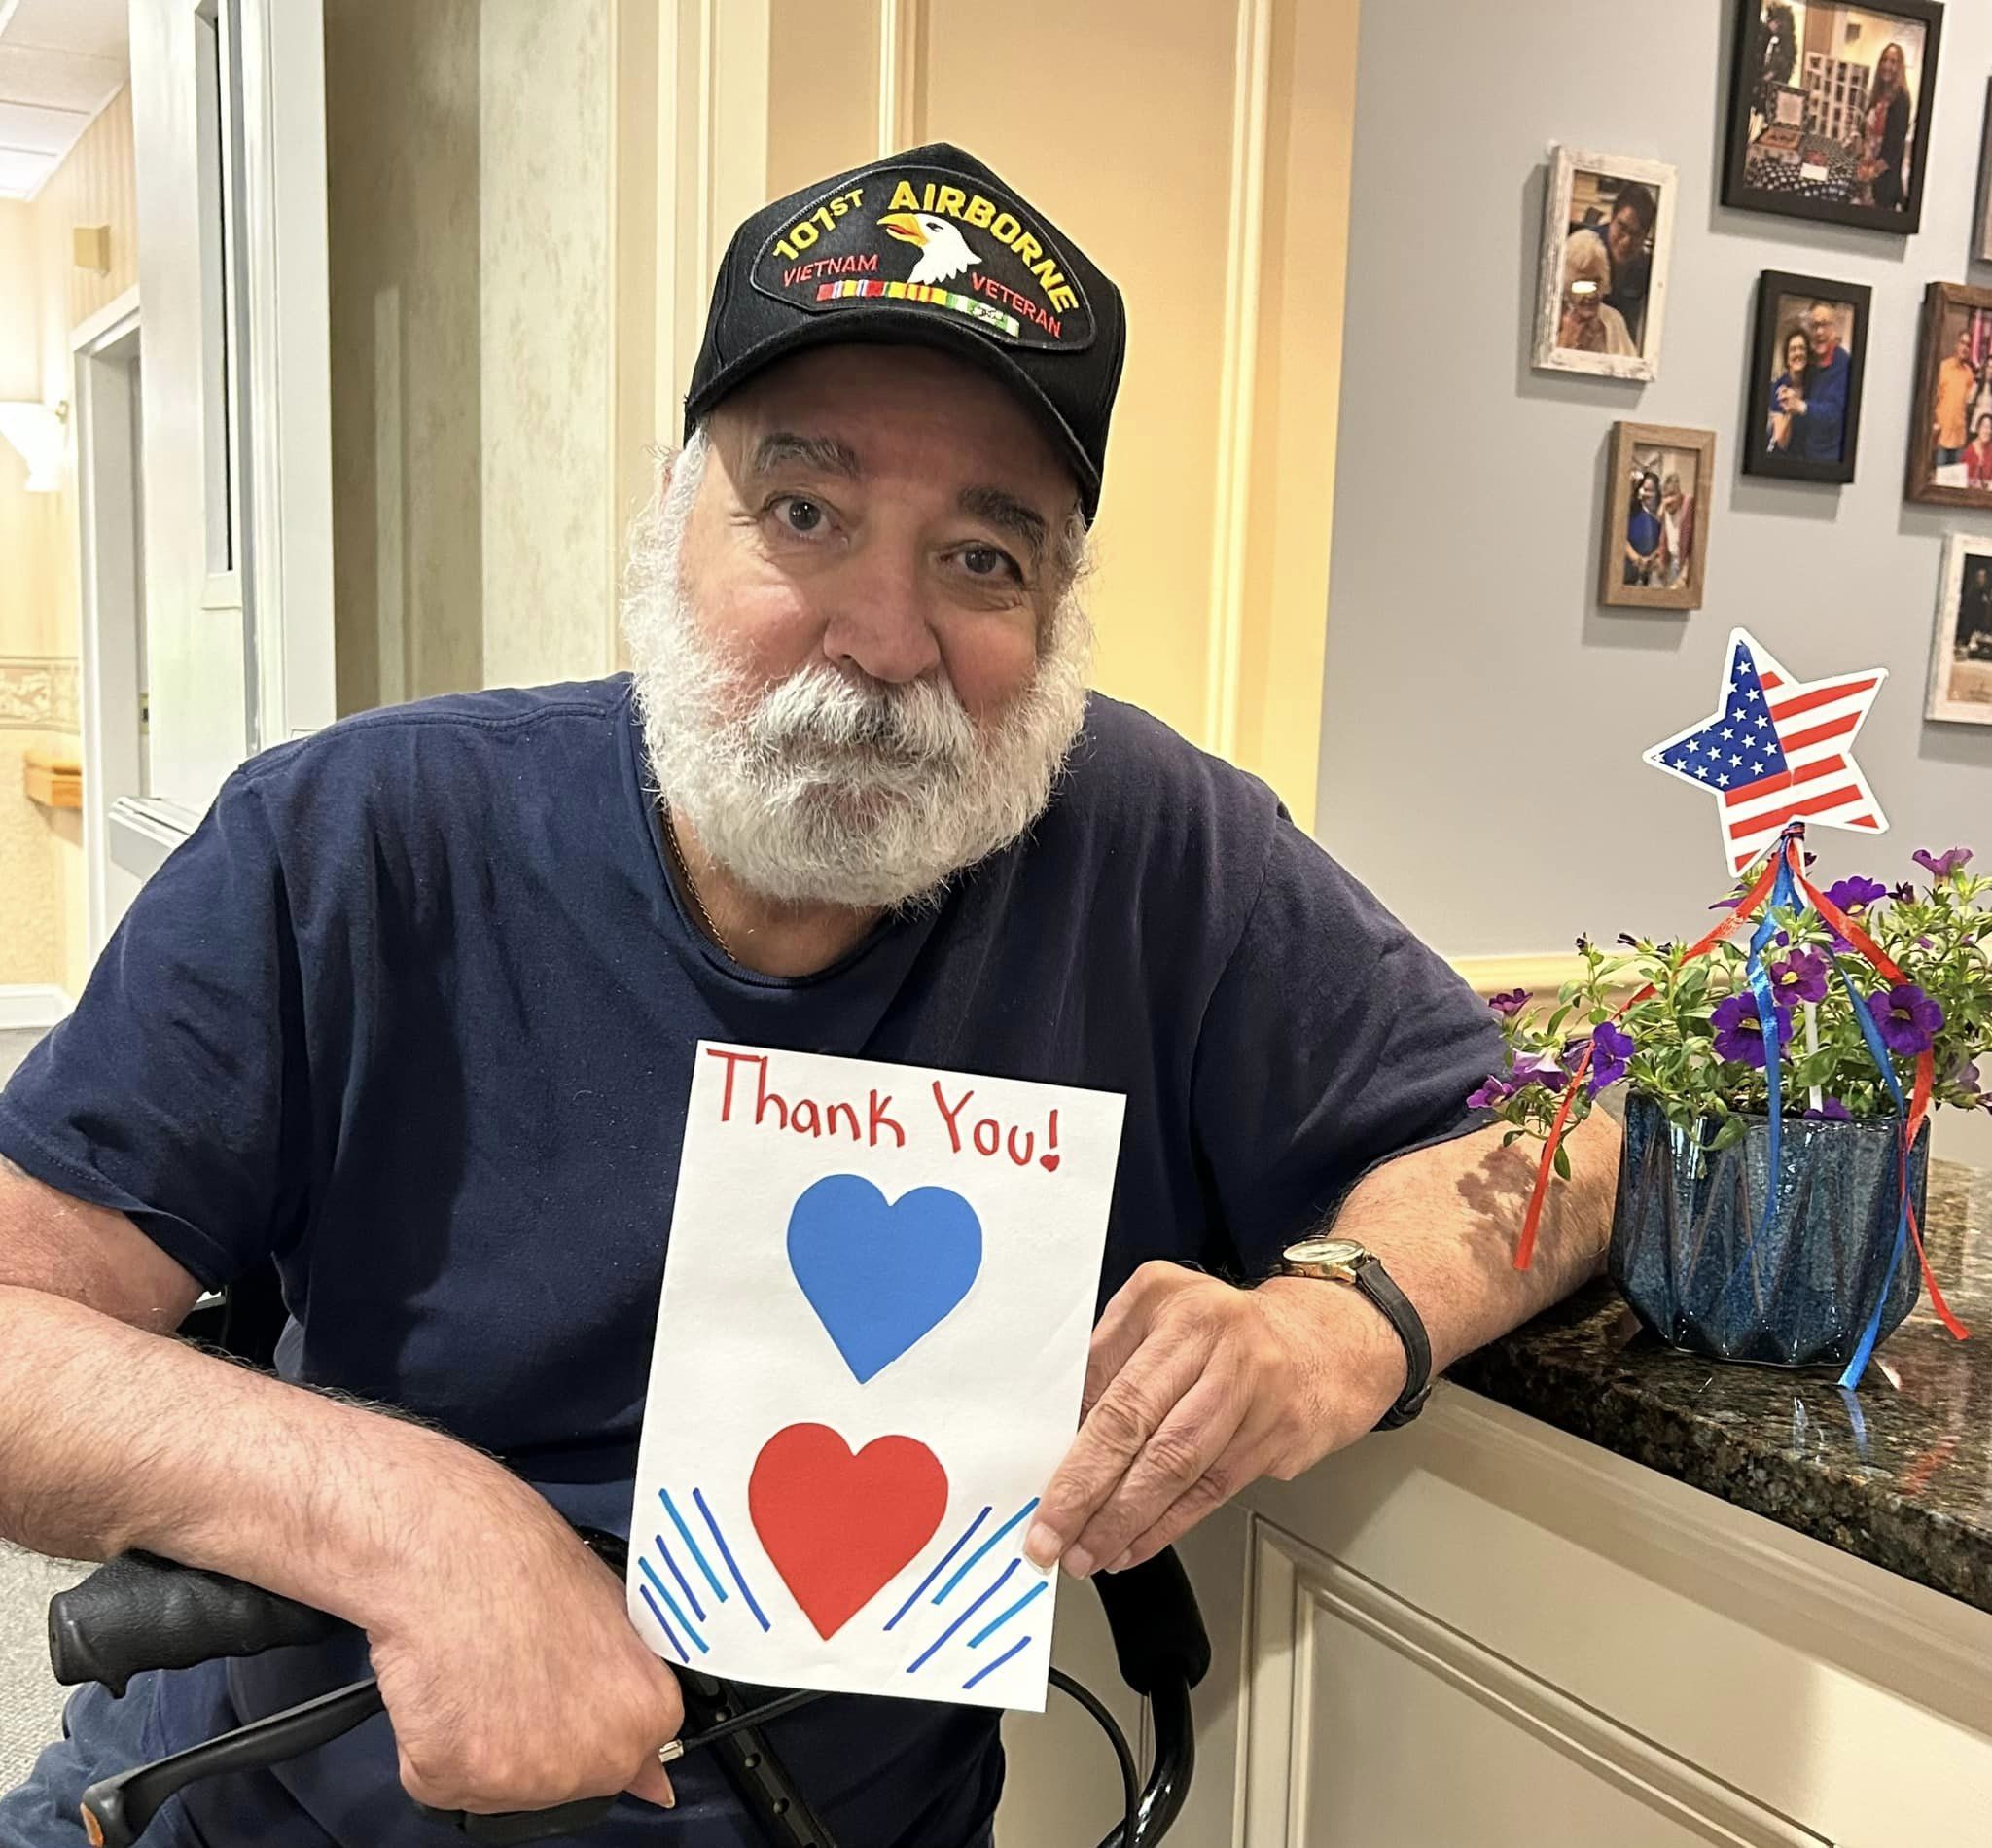 101ST AIRBORNE
VIETNAM VETERAN
Thank You!